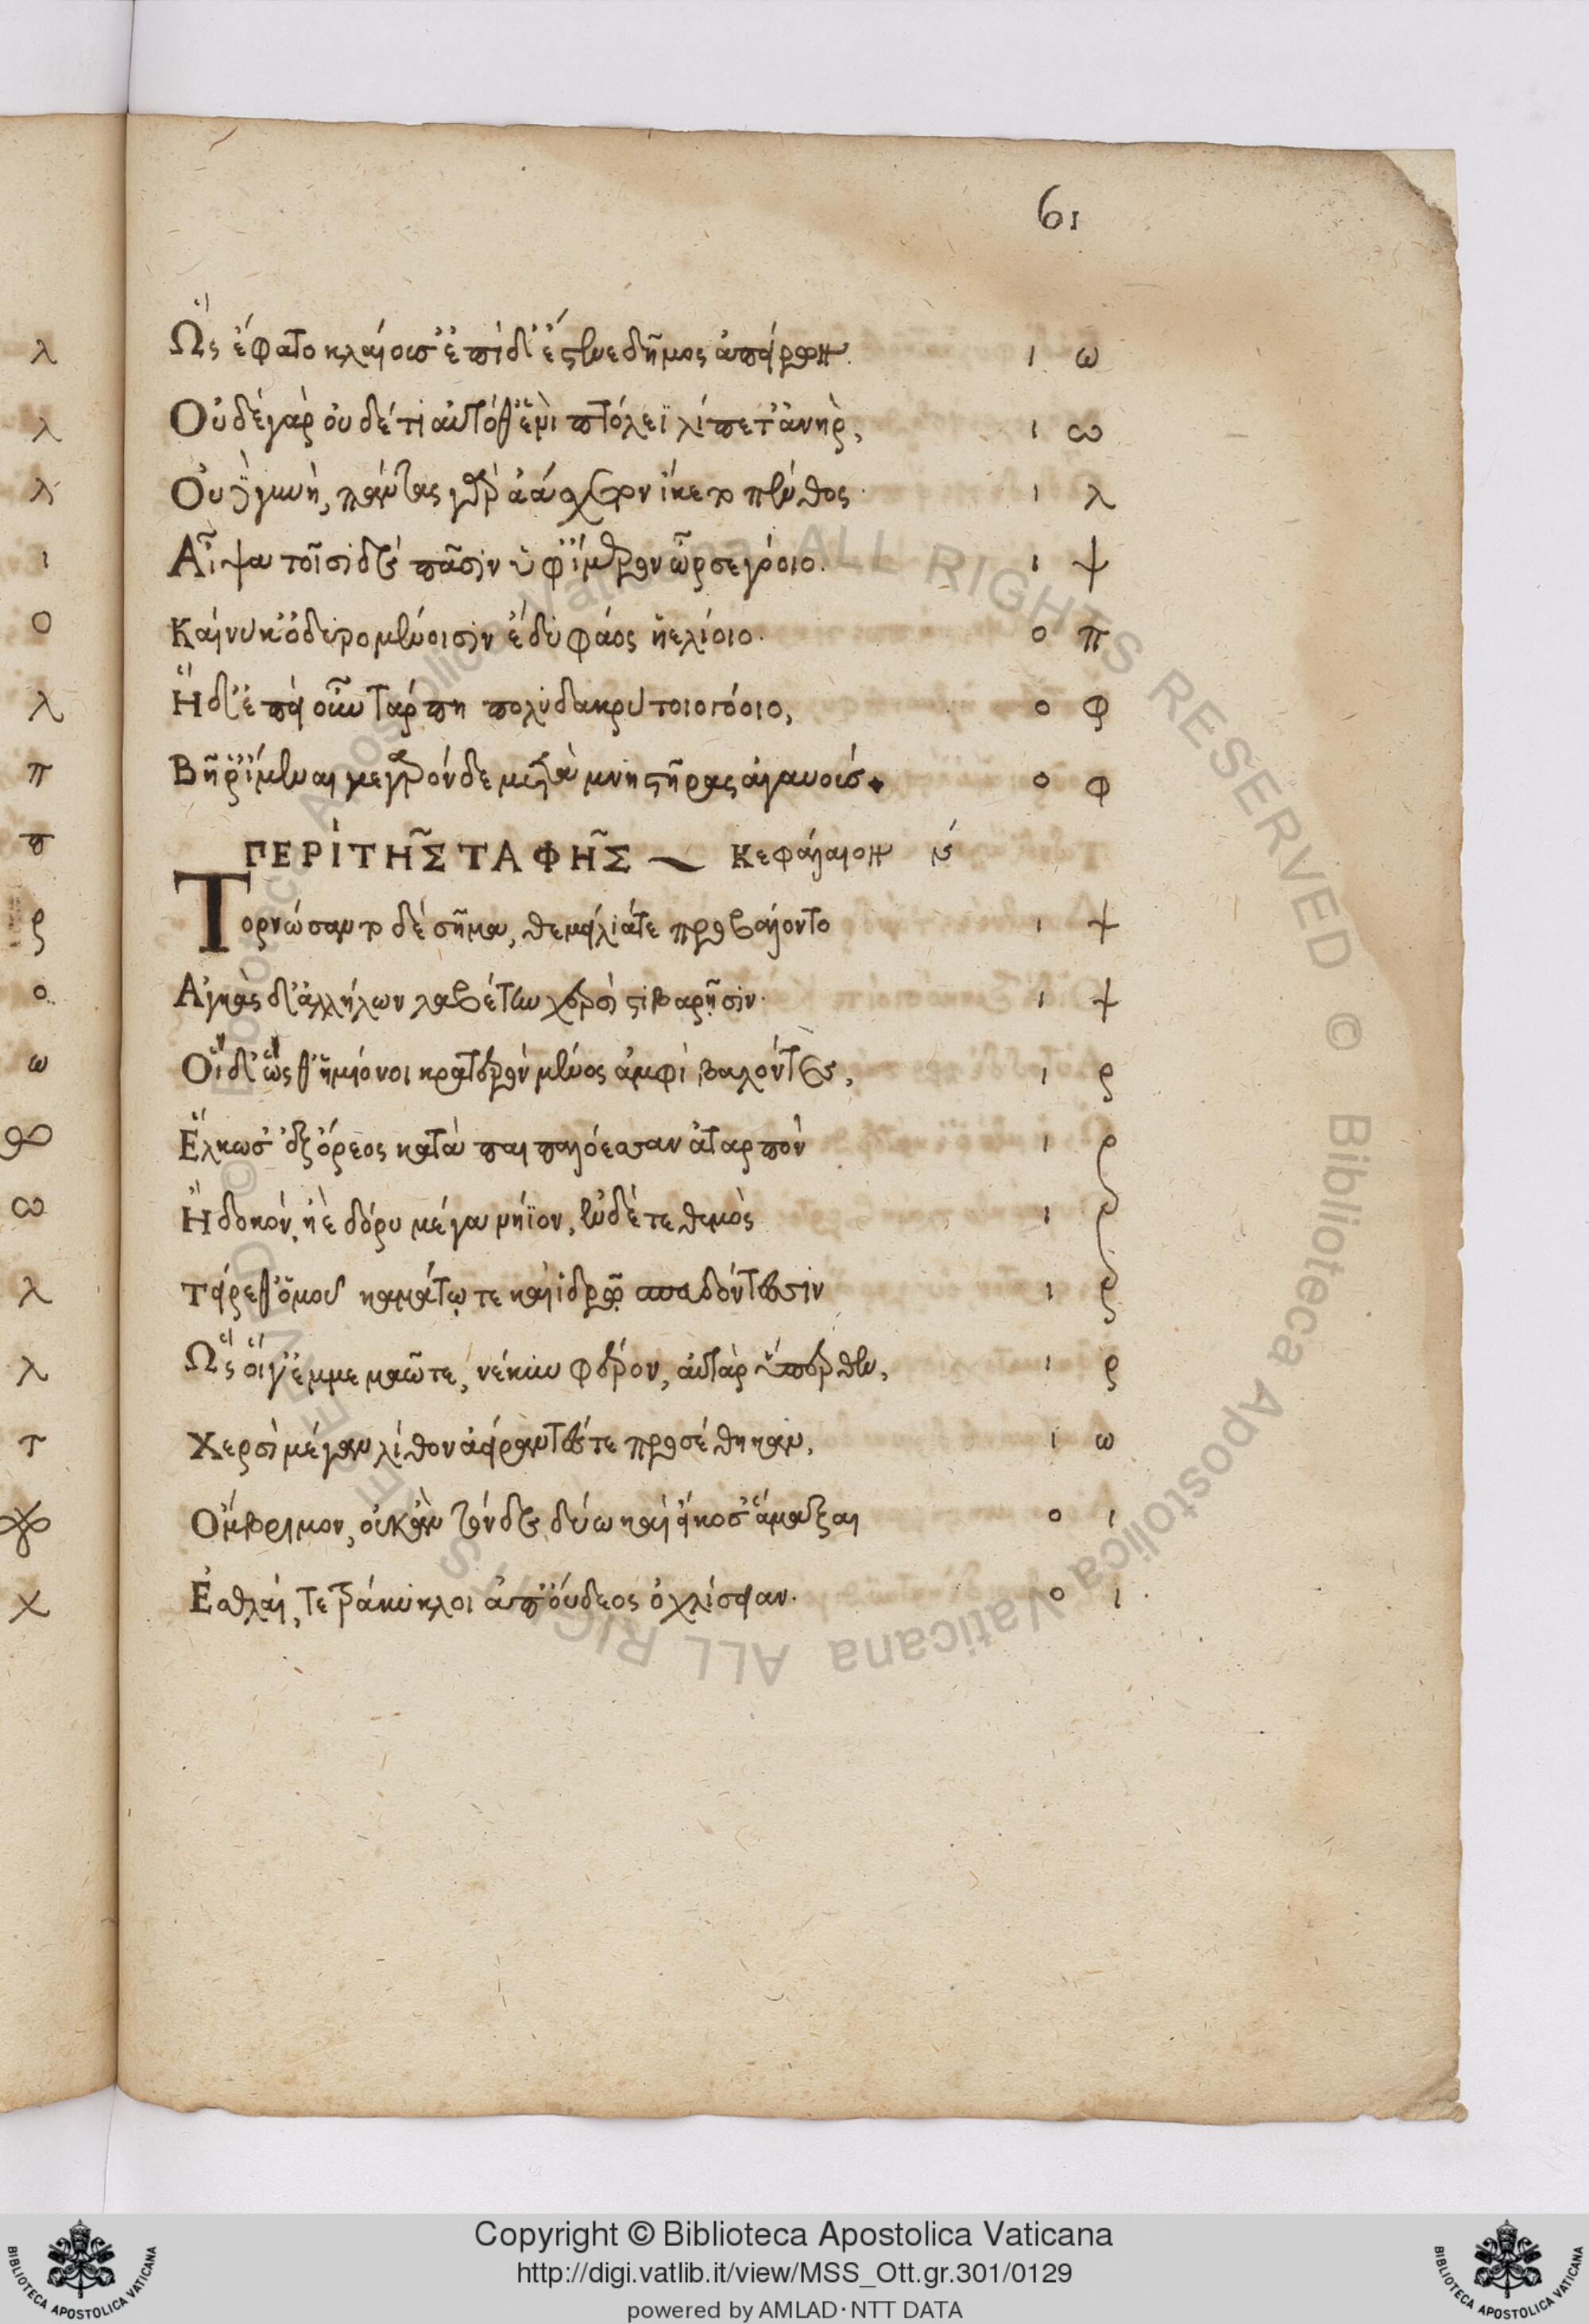 61
λ
λ
λ
ι
ο
λ
π
π
ρ
ο
ω
ω
λ
λ
τ
χ
Ὣς ἔφατο κλαίουσ' ἐπὶ δ' ἔστενε δῆμος ἀπείρων. ι ω
Οὐδὲ γὰρ οὐδέ τι αὐτόθ' ἐνὶ πτόλεϊ λίπετ' ἀνὴρ, ι ω
Οὐδὲ γυνή, πάντας γὰρ ἀάσχετον ἵκετο πένθος. ι λ
Αἶψα τοῖσι δὲ πᾶσιν ὑφ' ἵμερον ὦρσε γόοιο. ι ψ
Καί νύ κ' ὀδυρομένοισιν ἔδυ φάος ἠελίοιο. ο π
Ἡ δ' ἐπεὶ οὖν τάρπη πολυδακρύτοιο γόοιο, ο φ
Βῆ ῥ' ἴμεναι μέγαρόνδε μετὰ μνηστῆρας ἀγαυούς ο φ
ΠΕΡῚ ΤΗ͂Σ ΤΑΦΗ͂Σ Κεφάλαιον
Τορνώσαντο δὲ σῆμα, θεμείλιά τε προβάλοντο ι ψ
Αἶγας δ' ἀλλήλων λαβέτην χερσὶ στιβαρῇσιν. ι ψ
Οἱ δ' ὥς θ' ἡμίονοι κρατερὸν μένος ἀμφιβαλόντες, ι ρ
Ἕλκωσ' ἐξ ὄρεος κατὰ παιπαλόεσσαν ἀταρπὸν ι ρ
Ἢ δοκόν, ἠὲ δόρυ μέγα νήϊον, ἐν δέ τε θυμὸς ι ρ
Τείρεθ' ὁμοῦ καμάτῳ τε καὶ ἱδρῷ σπευδόντεσσιν ι ρ
Ὣς οἵ γ' ἐμμεμαῶτε, νέκυν φέρον, αὐτὰρ ὕπερθεν, ι ρ
Χερσὶ μέγαν λίθον ἀείραντές τε προσέθηκαν, ι ω
Ὄμβριμον, οὐκ ἂν τόνδε δύω καὶ εἴκοσ' ἄμαξαι ο ι
Ἐσθλαί, τετράκυκλοι ἀπ' οὔδεος ὀχλίσειαν. ο ι
© Biblioteca Apostolica Vaticana ALL RIGHTS RESERVED © Biblioteca Apostolica Vaticana ALL RIGHTS RESERVED
Copyright © Biblioteca Apostolica Vaticana
http://digi.vatlib.it/view/MSS_Ott.gr.301/0129
powered by AMLAD·NTT DATA
BIBLIOTECA APOSTOLICA VATICANA
BIBLIOTECA APOSTOLICA VATICANA